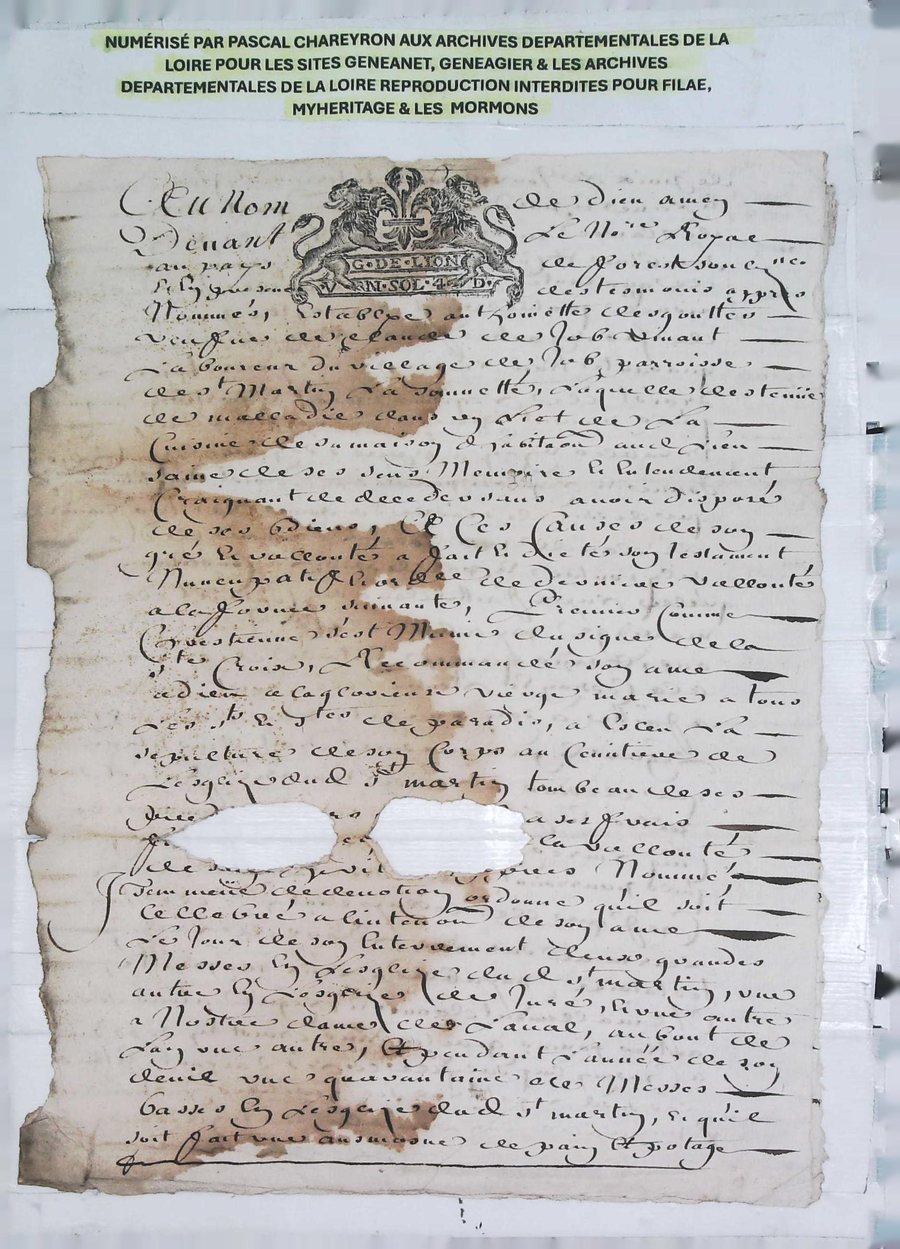 NUMÉRISÉ PAR PASCAL CHAREYRON AUX ARCHIVES DEPARTEMENTALES DE LA
LOIRE POUR LES SITES GENEANET, GENEAGIER & LES ARCHIVES
DEPARTEMENTALES DE LA LOIRE REPRODUCTION INTERDITES POUR FILAE,
MYHERITAGE & LES MORMONS
Au Nom de dieu amen
G·DE·LION
N·SOL·4·D·
Pardevant Le No.re Royal
au pays de forest soubz.ne
et en presence des tesmoins appres
Nommés, Establye anthoinette desgouttes
veufve de claude de Job vivant
Laboureur du village de Job, parroisse
de st Martin La sauvetté, Laquelle destenue
de malladie dans un Lict de La
Cuisine de sa maison d'habitaon aud Lieu
saine de ses sens Memoire et Entendement
Craignant de decedeer sans avoir disposé
de ses biens, Et Ces Causes de son
gré et vollonté a fait et dicté son testament
Nuncupatif et ordce de derniere vollonté
a la forme suivante, Premier Comme
Crestienne s'est Munie du signe de la
ste Croix, Recommandé son ame
a dieu a la glorieuse vierge marie a tous
Les sts et stes de paradis, a Esleu La
sepulture de son Corps au Cemitiere de
L'esglize dud st martin tombeau de ses
a ses frais
la vollonté
Nommé
Item meüe de devotion ordonne qu'il soit
cellebré a l'intention de son ame
Le Jour de son Enterrement deux grandes
Messes En L'esglize dud st martin, une
autre En L'esglize de Juré, et une autre
a Nostre dame de Laval, au bout de
L'an une autre, Et pendant L'année de son
deuil une quarantaine de Messes
basses En L'esglize dud st martin, et qu'il
soit fait une ausmosne de pain Et potage